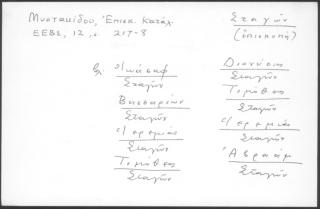 Μυστακίδου, Ἐπισκ. Κατάλ.
ΕΕΒΣ, 12, σ. 217-8
Σταγῶν
(ἐπισκοπή)
Ἰωάσαφ
Σταγῶν
Βησσαρίων
Σταγῶν
Ἰερεμίας
Σταγῶν
Τιμόθεος
Σταγῶν
Διονύσιος
Σταγῶν
Τιμόθεος
Σταγῶν
Ἰερεμίας
Σταγῶν
Ἀβραάμ
Σταγῶν